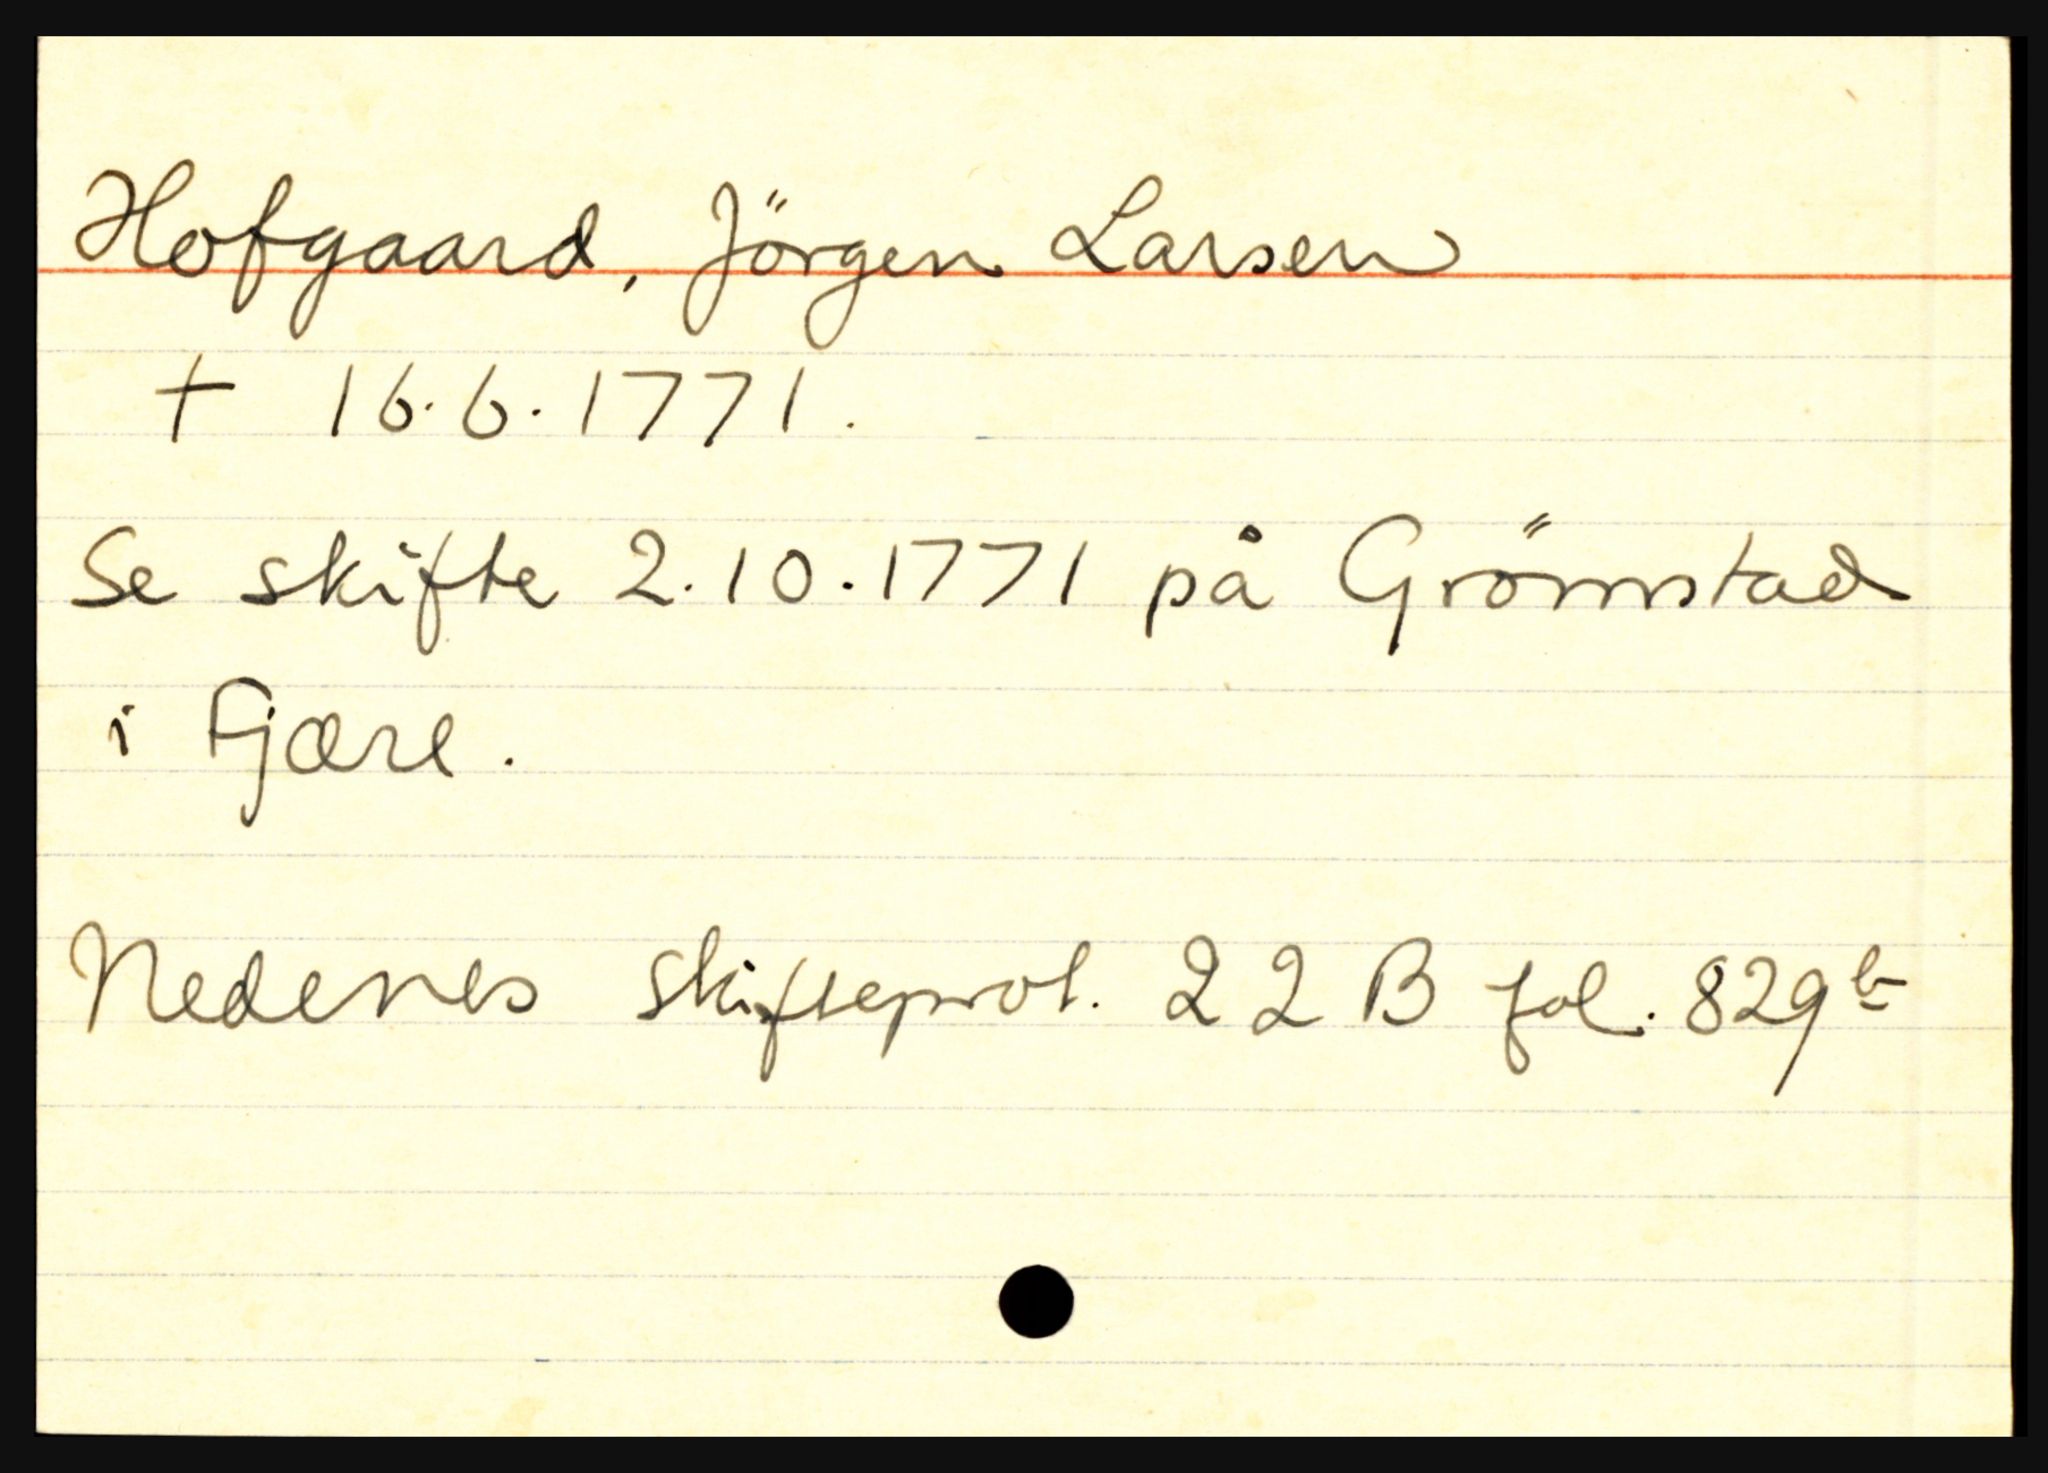 Hofgaard, Jörgen Larsen
† 16.6.1771.
Se skifte 2.10.1771 på Grömstad
i Fjære.
Nedenes skifteprot. 22 B fol. 829<sup>b</sup>